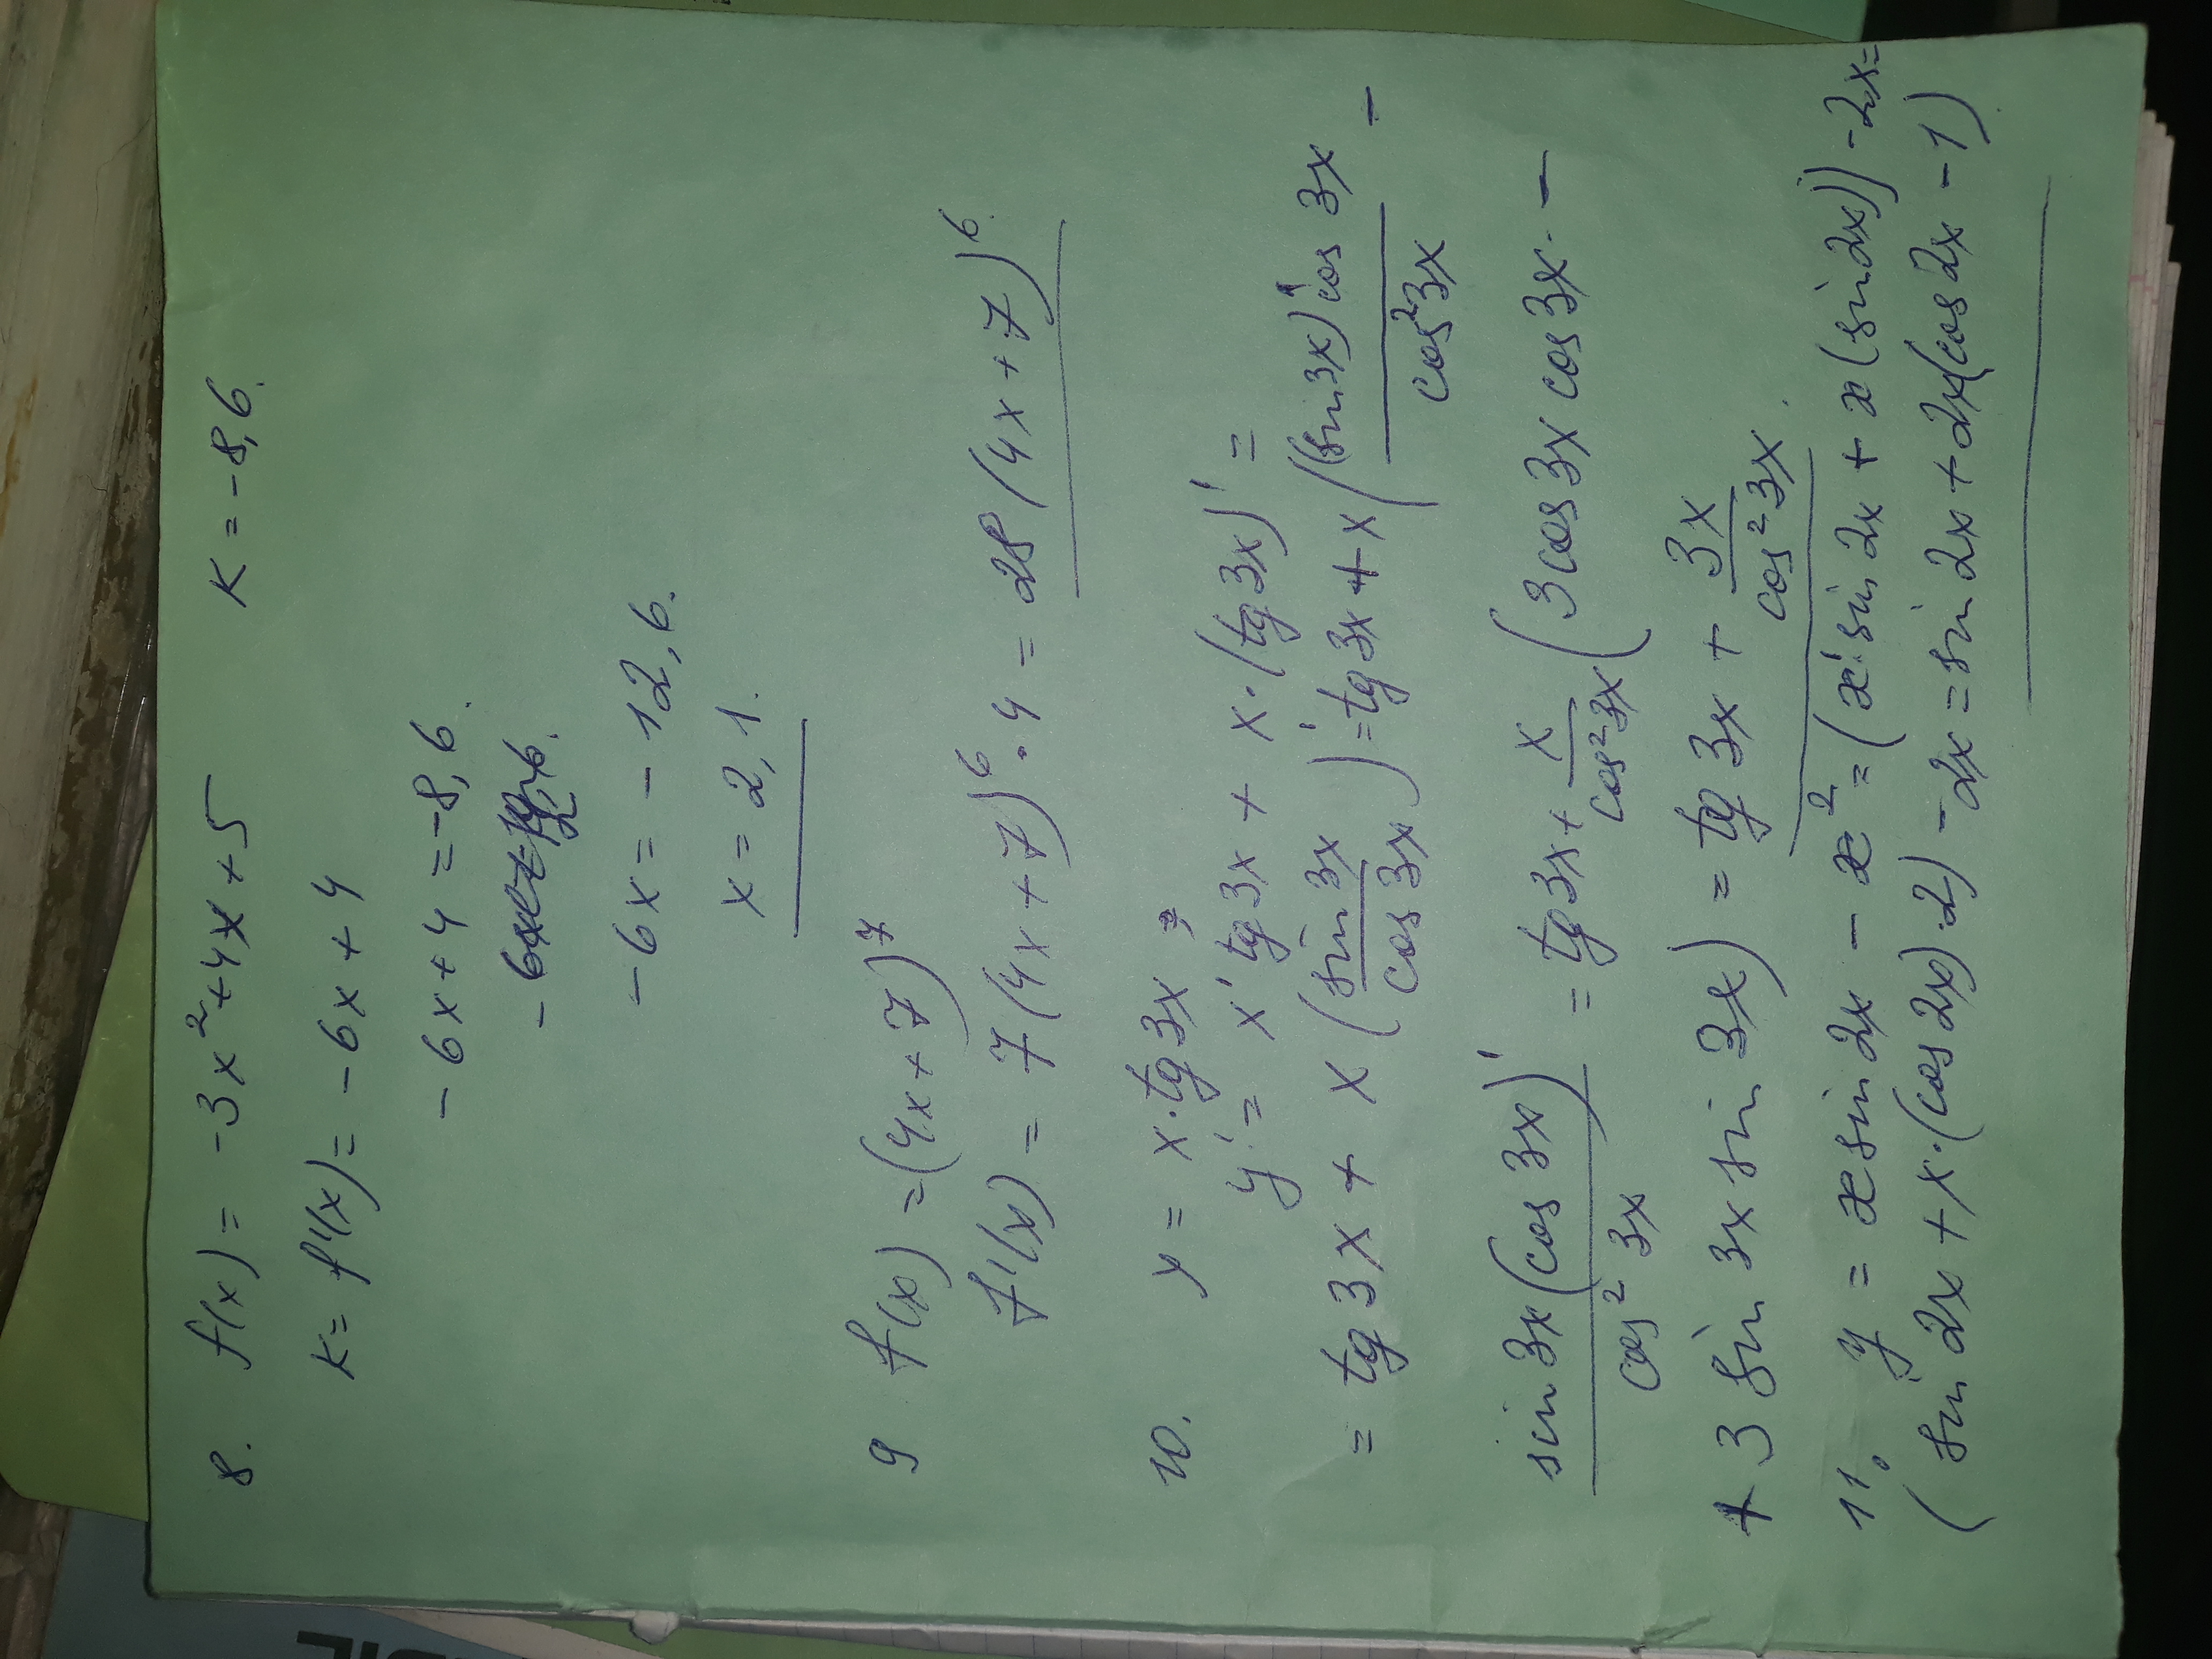 8. f(x) = -3x²+4x+5 K = -8,6.
K = f'(x) = -6x+4
-6x+4 = -8,6.
-6x = -12,6.
x = 2,1.
9 f(x) = (4x+7)⁷
f'(x) = 7(4x+7)⁶·4 = 28(4x+7)⁶.
10. y = x·tg3x
y' = x' tg3x + x·(tg3x)' =
= tg3x + x(sin3x/cos3x)' = tg3x + x((sin3x)'cos3x/cos²3x -
sin3x(cos3x)'/cos²3x) = tg3x + x/cos²3x (3cos3x cos3x. -
+ 3sin3x sin3x) = tg3x + 3x/cos²3x.
11. y = x sin2x - x² = (x'·sin2x + x(sin2x)') - 2x =
(sin2x + x·(cos2x)·2) - 2x = sin2x + 2x(cos2x - 1)